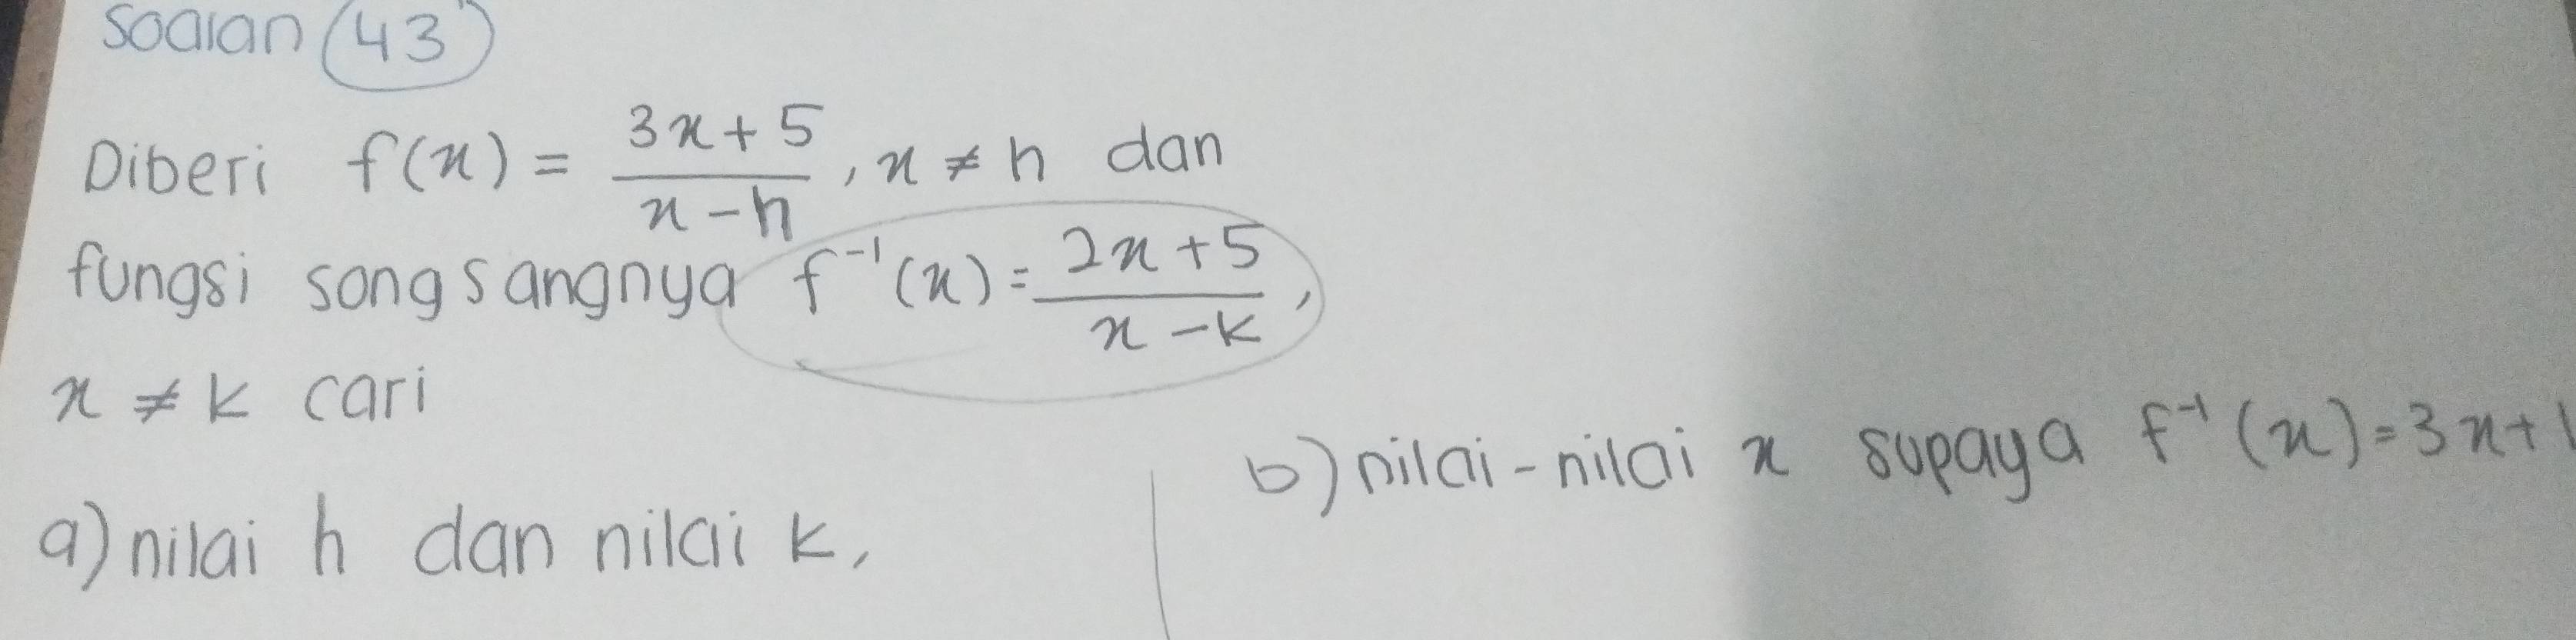 Soalan 43
Diberi f(x) = 3x+5 / x-h , x ≠ h dan
fungsi songsangnya f⁻¹(x) = 2x+5 / x-k ,
x ≠ k cari
a) nilai h dan nilai k,
b) nilai-nilai x supaya f⁻¹(x)=3x+1